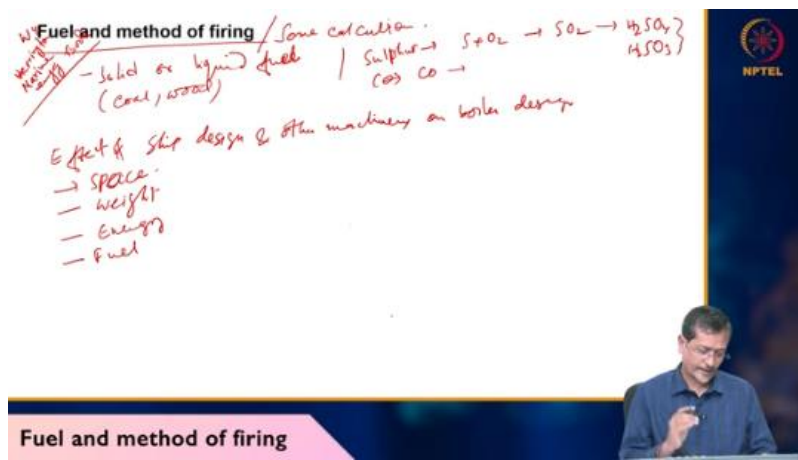 Fuel and method of firing / Some calculation.
- Solid or liquid fuel
(coal, wood)
Sulphur → S+O2 → SO2 → H2SO4
H2SO3
CO →
Effect of Ship design & other machinery on boiler design
→ Space.
- Weight
- Energy
- Fuel
NPTEL
Fuel and method of firing